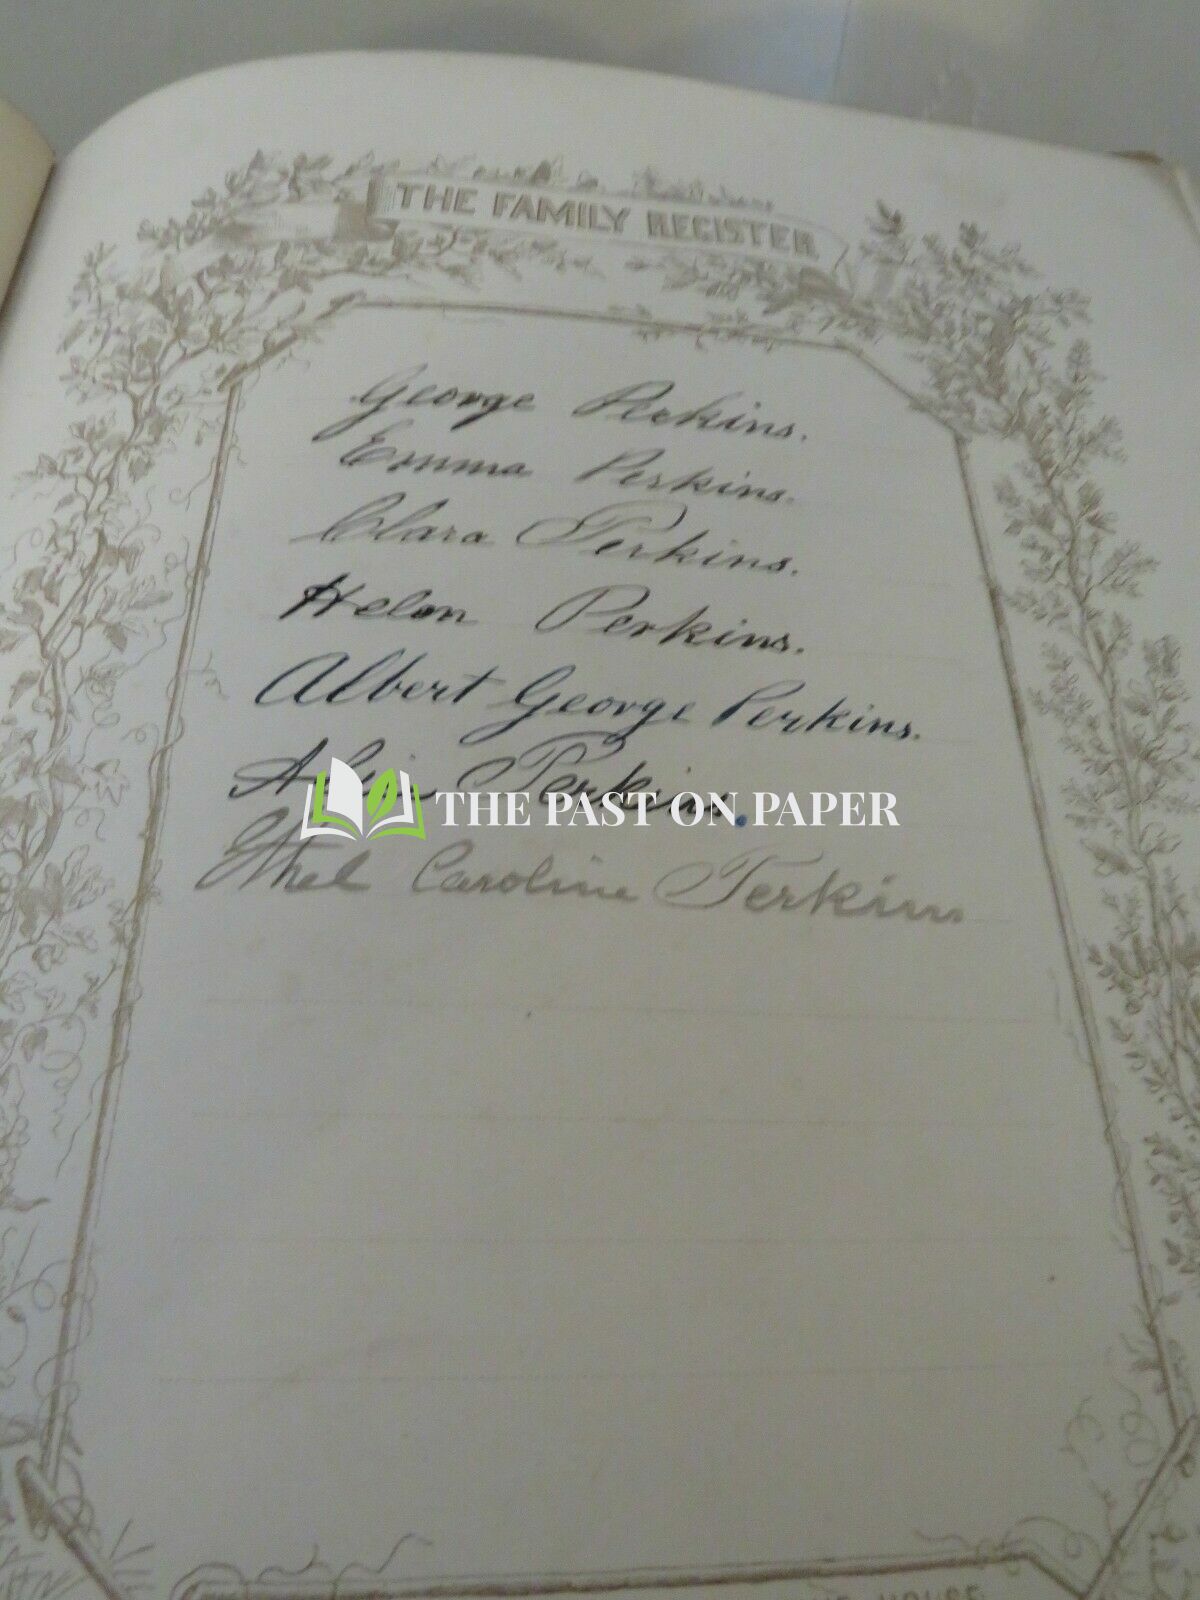 THE FAMILY REGISTER
George Perkins.
Emma Perkins.
Clara Perkins.
Helen Perkins.
Albert George Perkins.
Perkins.
THE PAST ON PAPER
Ethel Caroline Perkins
HOUSE